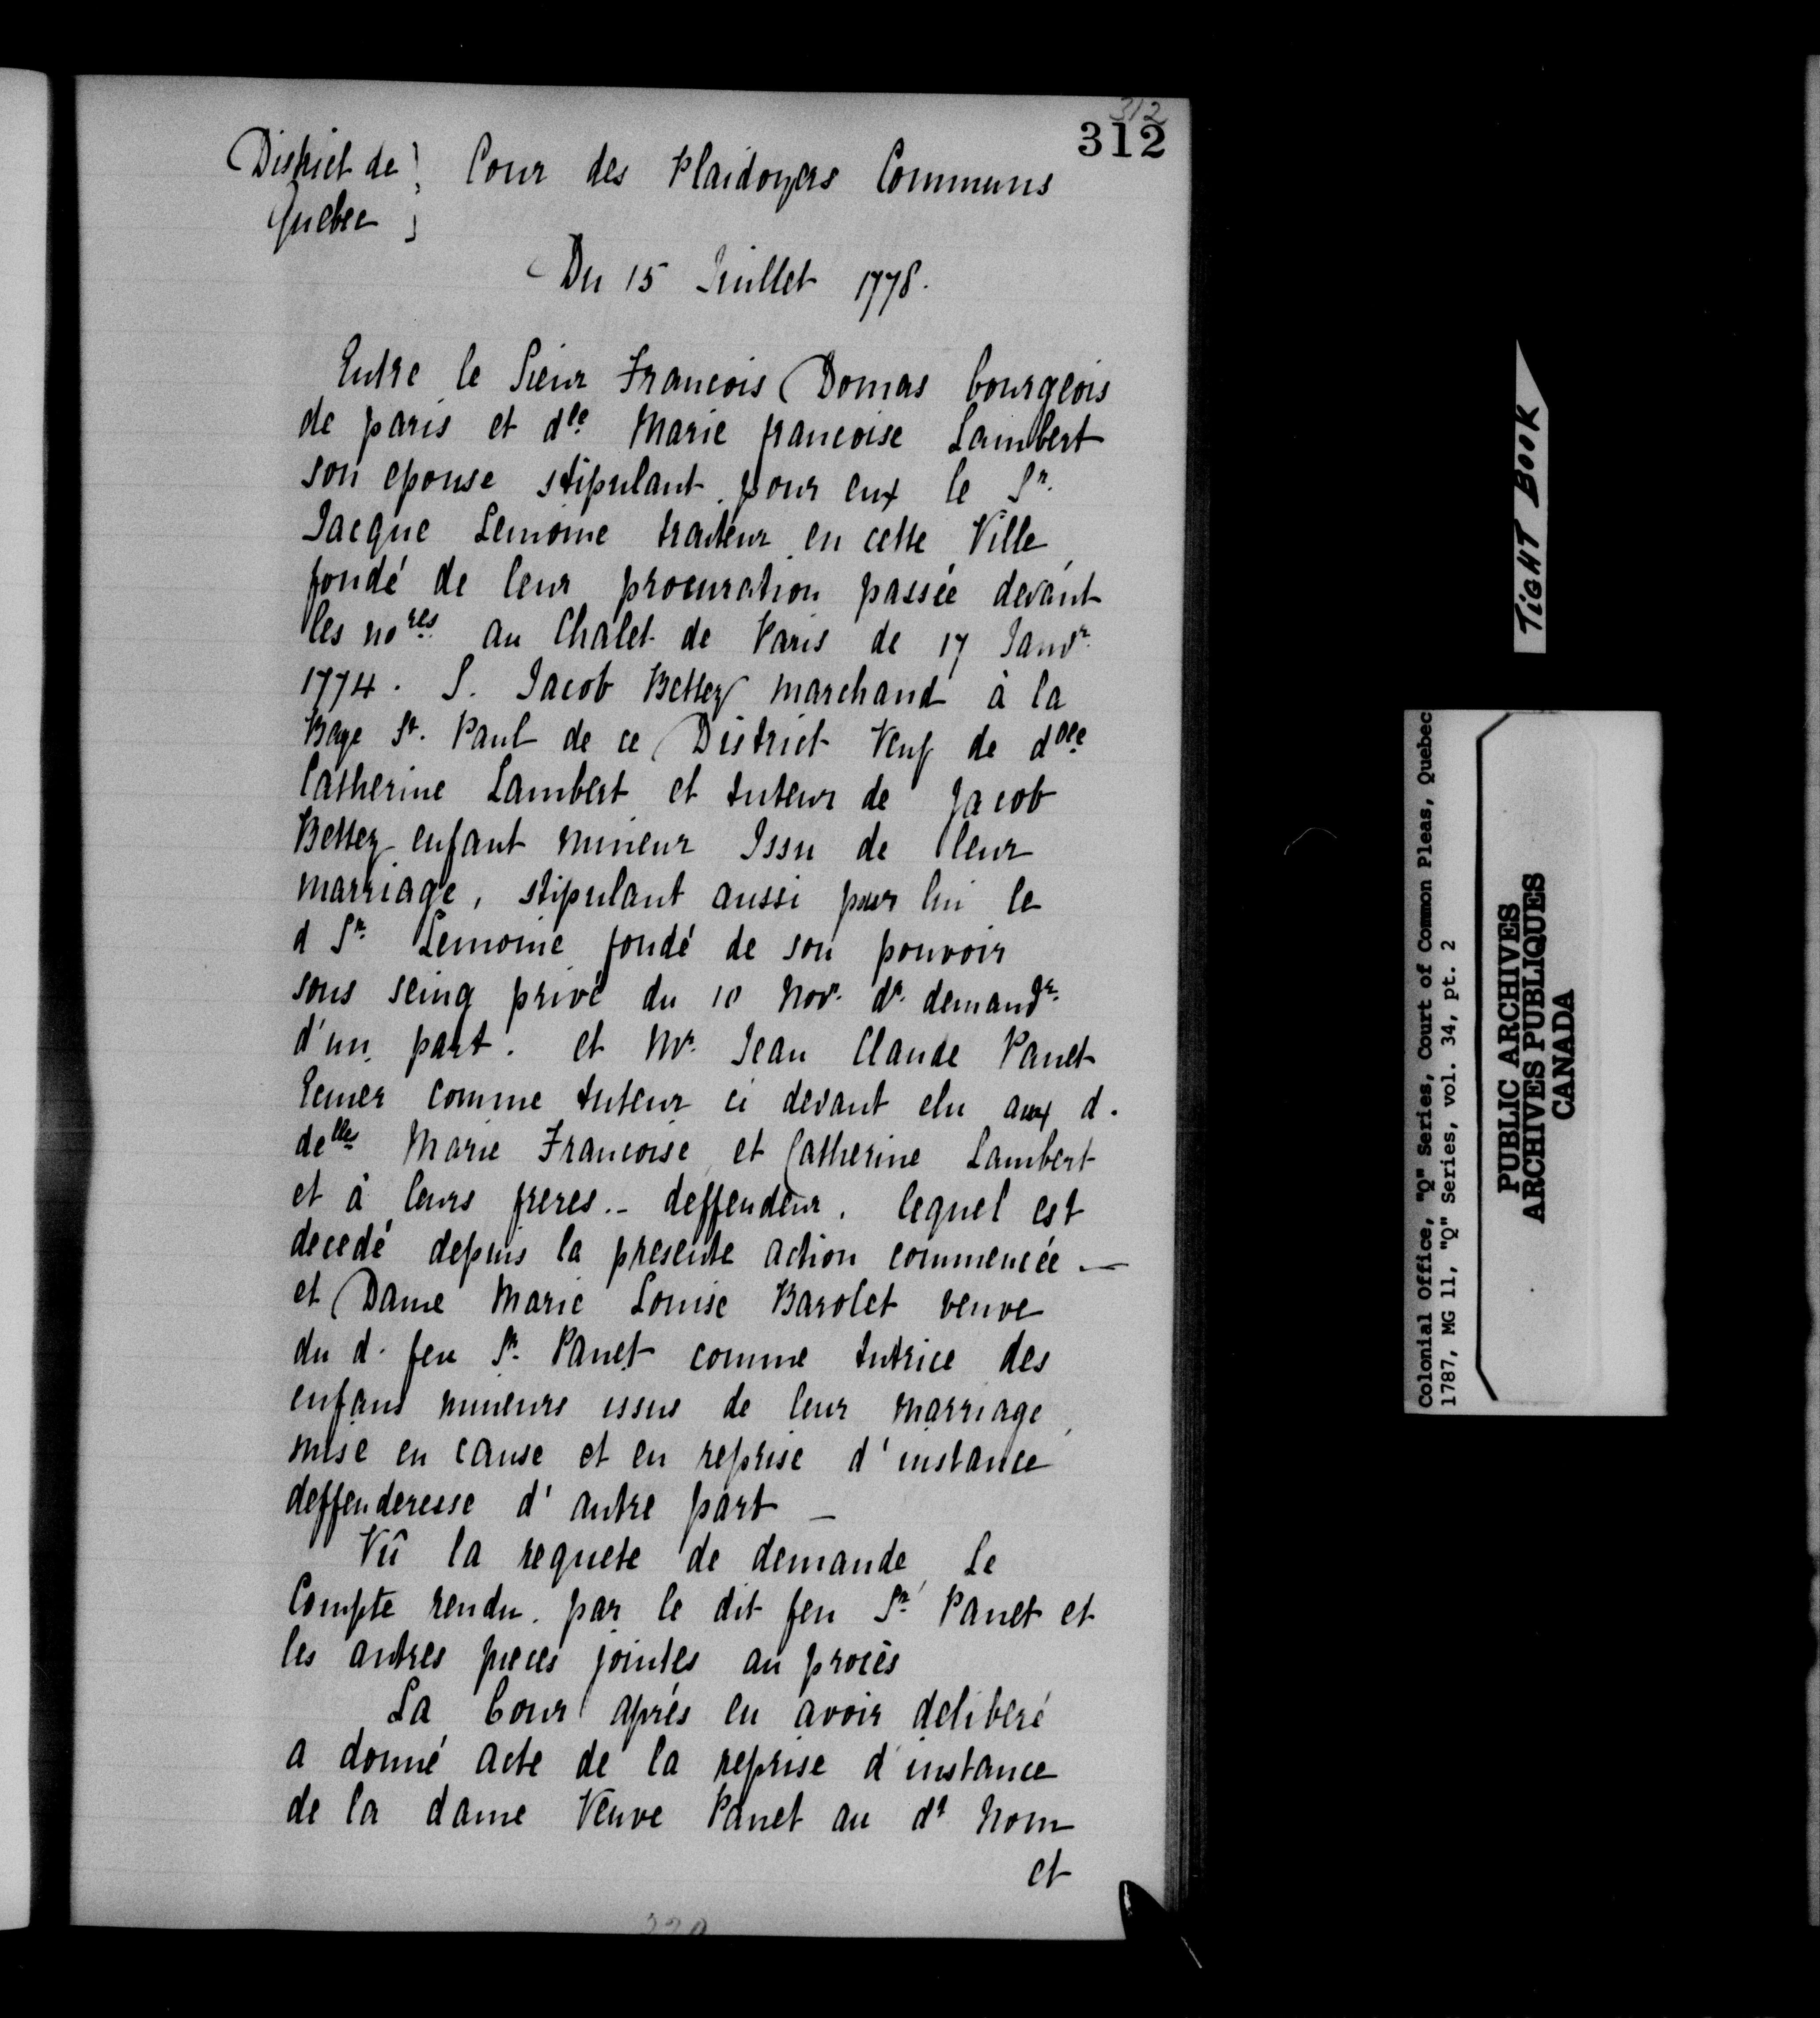 312
312
District de } Cour des Plaidoyers Communs
Quebec }
Du 15 Juillet 1778.
Entre le Sieur Francois Domas bourgeois
de paris et dle Marie francoise Lambert
son epouse stipulant pour eux le Sr.
Jacque Lemoine traiteur en cette Ville,
fondé de leur procuration passée devant
les nores au Chalet de Paris de 17 Janvr
1774. S. Jacob Bettez marchand à la
Baye St. Paul de ce District Veuf de dlle
Catherine Lambert et tuteur de Jacob
Bettez enfant mineur Issu de leur
marriage, stipulant aussi pour lui le
d Sr. Lemoine fondé de son pouvoir
sous seing privé du 10 Nov. dr. demandr.
d'un part. et Mr. Jean Claude Panet
Ecuier comme tuteur ci devant elu aux d.
delles Marie Francoise et Catherine Lambert
et à leurs freres. - deffendeur. lequel est
decedé depuis la presente action commencée. —
et Dame Marie Louise Barolet veuve
du d. feu Sr. Panet comme tutrice des
enfans mineurs issus de leur marriage,
mise en cause et en reprise d'instance
deffenderesse d'autre part —
Vû la requete de demande, Le
Compte rendu par le dit feu Sr. Panet et
les autres pieces jointes au procès
La Cour aprés en avoir deliberé
a donné acte de la reprise d'instance
de la dame Veuve Panet au dt Nom
et
TIGHT BOOK
Colonial Office, "Q" Series, Court of Common Pleas, Quebec
1787, MG 11, "Q" Series, vol. 34, pt. 2
PUBLIC ARCHIVES
ARCHIVES PUBLIQUES
CANADA